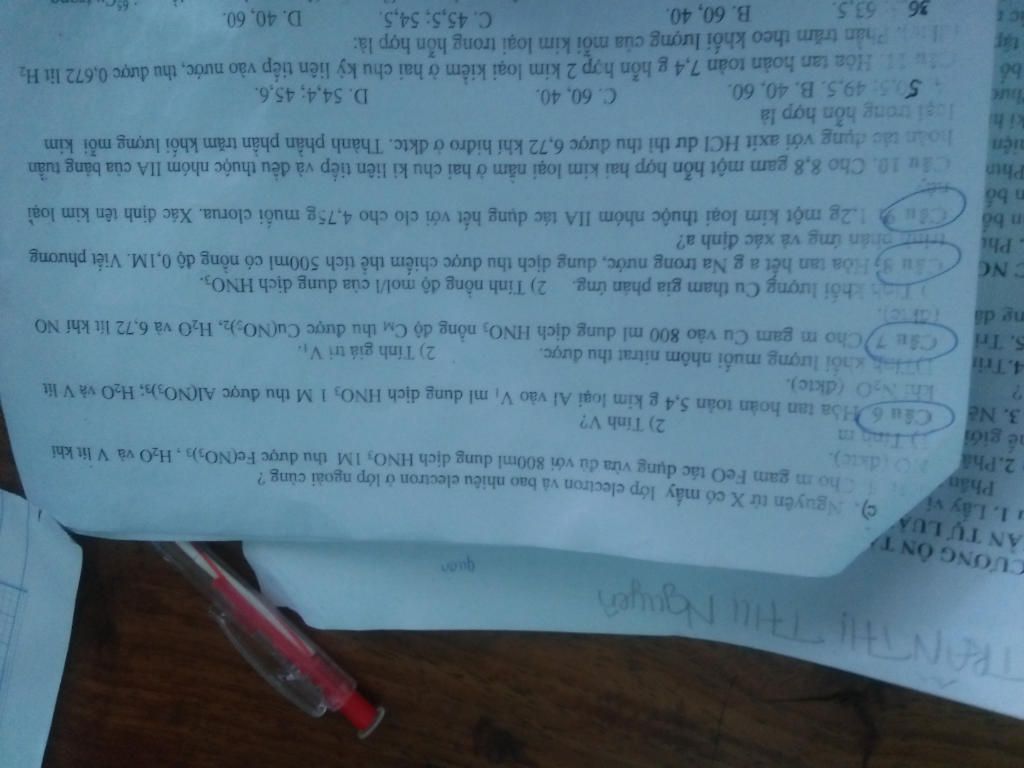 TRẦN THỊ THU Nguyên
quan
CƯƠNG ÔN T
ÀN TỰ LUẬ
1. Lấy ví
Phân
2.Phâ
hế giới
3. Nê
?
4.Trìn
5. Tri
ng dã
C NC
. Phu
c). Nguyên tử X có mấy lớp electron và bao nhiêu electron ở lớp ngoài cùng ?
Cho m gam FeO tác dụng vừa đủ với 800ml dung dịch HNO₃ 1M thu được Fe(NO₃)₃ , H₂O và V lít khí
O (đktc).
1) Tính m 2) Tính V?
Câu 6 Hòa tan hoàn toàn 5,4 g kim loại Al vào V₁ ml dung dịch HNO₃ 1 M thu được Al(NO₃)₃; H₂O và V lít
khí N₂O (đktc).
1) Tính khối lượng muối nhôm nitrat thu được. 2) Tính giá trị V₁.
Câu 7 Cho m gam Cu vào 800 ml dung dịch HNO₃ nồng độ C_M thu được Cu(NO₃)₂, H₂O và 6,72 lít khí NO
(đktc).
1) Tính khối lượng Cu tham gia phản ứng. 2) Tính nồng độ mol/l của dung dịch HNO₃.
Câu 8: Hòa tan hết a g Na trong nước, dung dịch thu được chiếm thể tích 500ml có nồng độ 0,1M. Viết phương
trình phản ứng và xác định a?
Câu 9: 1,2g một kim loại thuộc nhóm IIA tác dụng hết với clo cho 4,75g muối clorua. Xác định tên kim loại
này.
Câu 10. Cho 8,8 gam một hỗn hợp hai kim loại nằm ở hai chu kì liên tiếp và đều thuộc nhóm IIA của bảng tuần
hoàn tác dụng với axit HCl dư thì thu được 6,72 khí hidro ở đktc. Thành phần phần trăm khối lượng mỗi kim
loại trong hỗn hợp là
49,5. B. 40, 60. C. 60, 40. D. 54,4; 45,6.
Câu 11. Hòa tan hoàn toàn 7,4 g hỗn hợp 2 kim loại kiềm ở hai chu kỳ liên tiếp vào nước, thu được 0,672 lít H₂
(đktc). Phần trăm theo khối lượng của mỗi kim loại trong hỗn hợp là:
36 63,5. B. 60, 40. C. 45,5; 54,5. D. 40, 60.